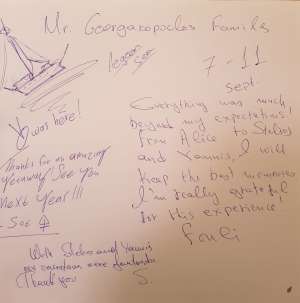 Mr. Georgakopoulos Family
Aegean Sea
7-11
Sept.
was here!
Thanks for an amazing
See you
next year!!!
- Soe
Everything was much
beyond my expectations!
From Alice to Stelios
and Yannis, I will
keep the best memories
I'm really grateful
for this experience!
Fouli
With Stelios and Yannis
our were fantastic
Thank you
S.